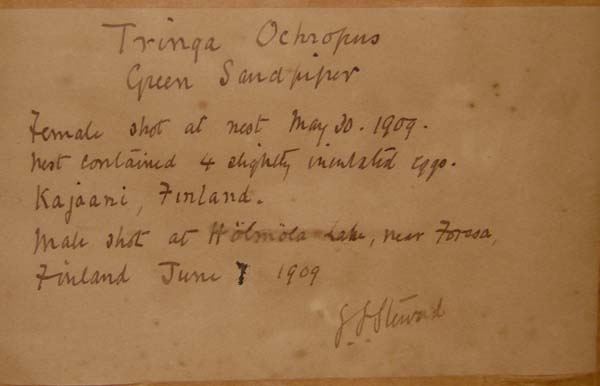 Tringa Ochropus
Green Sandpiper
Female shot at nest May 30. 1909.
Nest contained 4 slightly incubated eggs.
Kajaani, Finland.
Male shot at Hölmöla Lake, near Forssa,
Finland June 7 1909